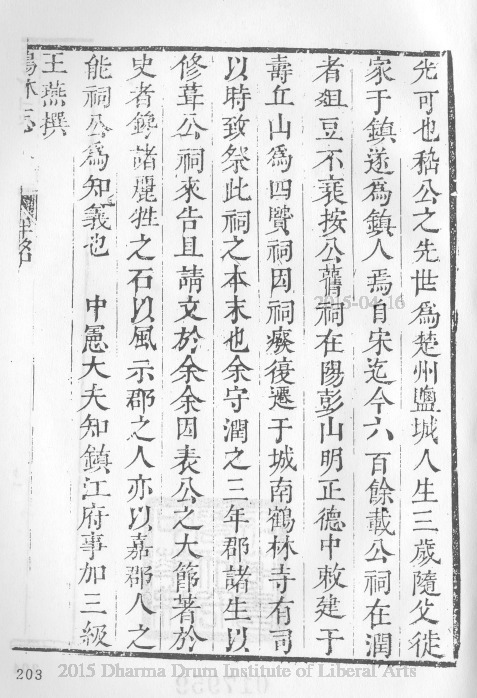 光可也嵇公之先世爲楚州鹽城人生三歲隨父徙
家于鎮遂爲鎮人焉自宋迄今六百餘載公祠在潤
者俎豆不衰按公舊祠在陽彭山明正德中敕建于
壽丘山爲四賢祠因祠癈復遷于城南鶴林寺有司
以時致祭此祠之本末也余守潤之三年郡諸生以
修葺公祠來告且請文於余余因表公之大節著於
史者鑱諸麗牲之石以風示郡之人亦以嘉郡人之
能祠公爲知義也 中憲大夫知鎮江府事加三級
王燕撰
2015-04-16
203
2015 Dharma Drum Institute of Liberal Arts